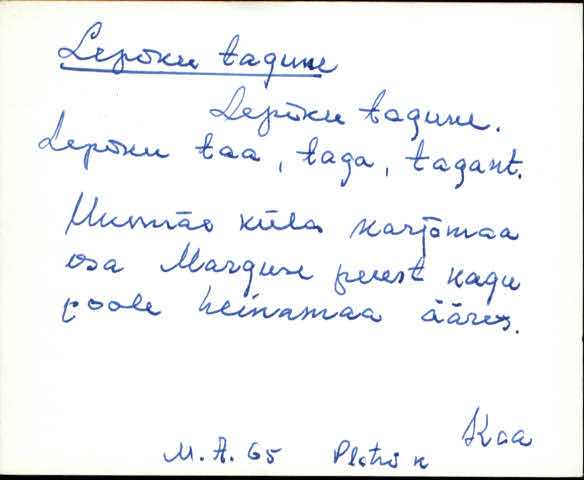 Lepiku tagune
Lepiku tagune.
Lepiku taa, taga, tagant.
küla karjamaa
osa Marguse perest kagu
poole heinamaa ääres.
Kaa
M. A. 65